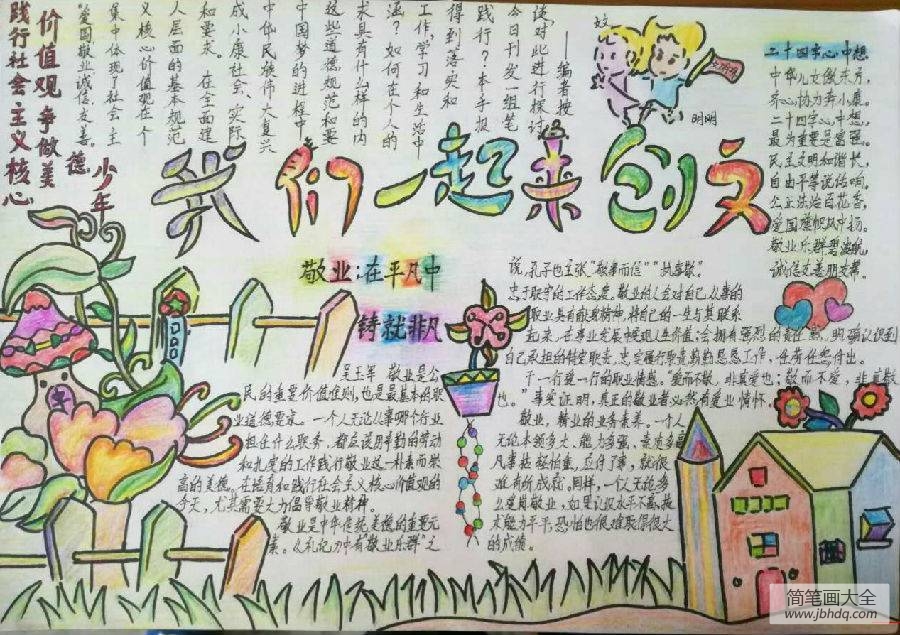 践行社会主义核心
价值观 争做美
德
少年
——编者按
谈对此进行探讨
今日刊发一组笔
践行？本手抄报
得到落实和
工作、学习和生活中
涵？如何在个人的
求具有什么样的内
这些道德规范和要
中国梦的进程中
中华民族伟大复兴
成小康社会、实际
和要求。在全面建
人层面的基本规范
义核心价值观在个
集中体现了社会主
“爱国敬业诚信友善。
我们一起来创文
文
明明
文明
二十四字心中想
中华儿女傲东方，
齐心协力奔小康。
二十四字心中想，
最为重要是富强。
民主文明和谐长，
自由平等说传响。
公正法治百花香，
爱国旗帜风中扬。
敬业乐群
诚信友善朋友帮。
敬业：在平凡中
铸就非凡
吴玉军 敬业是公
民的重要价值准则，也是最基本的职
业道德要求。一个人无论从事哪个行业
担任什么职务，都应该用辛勤的劳动
和扎实的工作践行敬业这一朴素而崇
高的美德。在培育和践行社会主义核心价值观的
今天，尤其需要大力倡导敬业精神。
敬业是中华传统美德的重要元
素。从礼记中有“敬业乐群”之
说，孔子也主张“敬事而信”“执事敬”。
忠于职守的工作态度。敬业的人会对自己从事的
职业具有献身精神，将自己的一生与其联系
起来，在事业发展中实现人生价值；会拥有强烈的责任感，明确认识到
自己承担的特定职责，忠实履行职责兢兢恳恳工作，任劳任怨付出。
干一行爱一行的职业情感。“爱而不敬，非真爱也；敬而不爱，非真敬
也。”事实证明，真正的敬业者必然有爱业情怀。
敬业，精业的业务素养。一个人
无论本领多大，能力多强，
凡事拈轻怕重，应付了事，就很
难有所成就。同样，一个人无论多
么爱岗敬业，如果让技术水平不高，技
术能力平平，恐怕也很难取得很大
的成绩。
简笔画大全
www.jbhdq.com